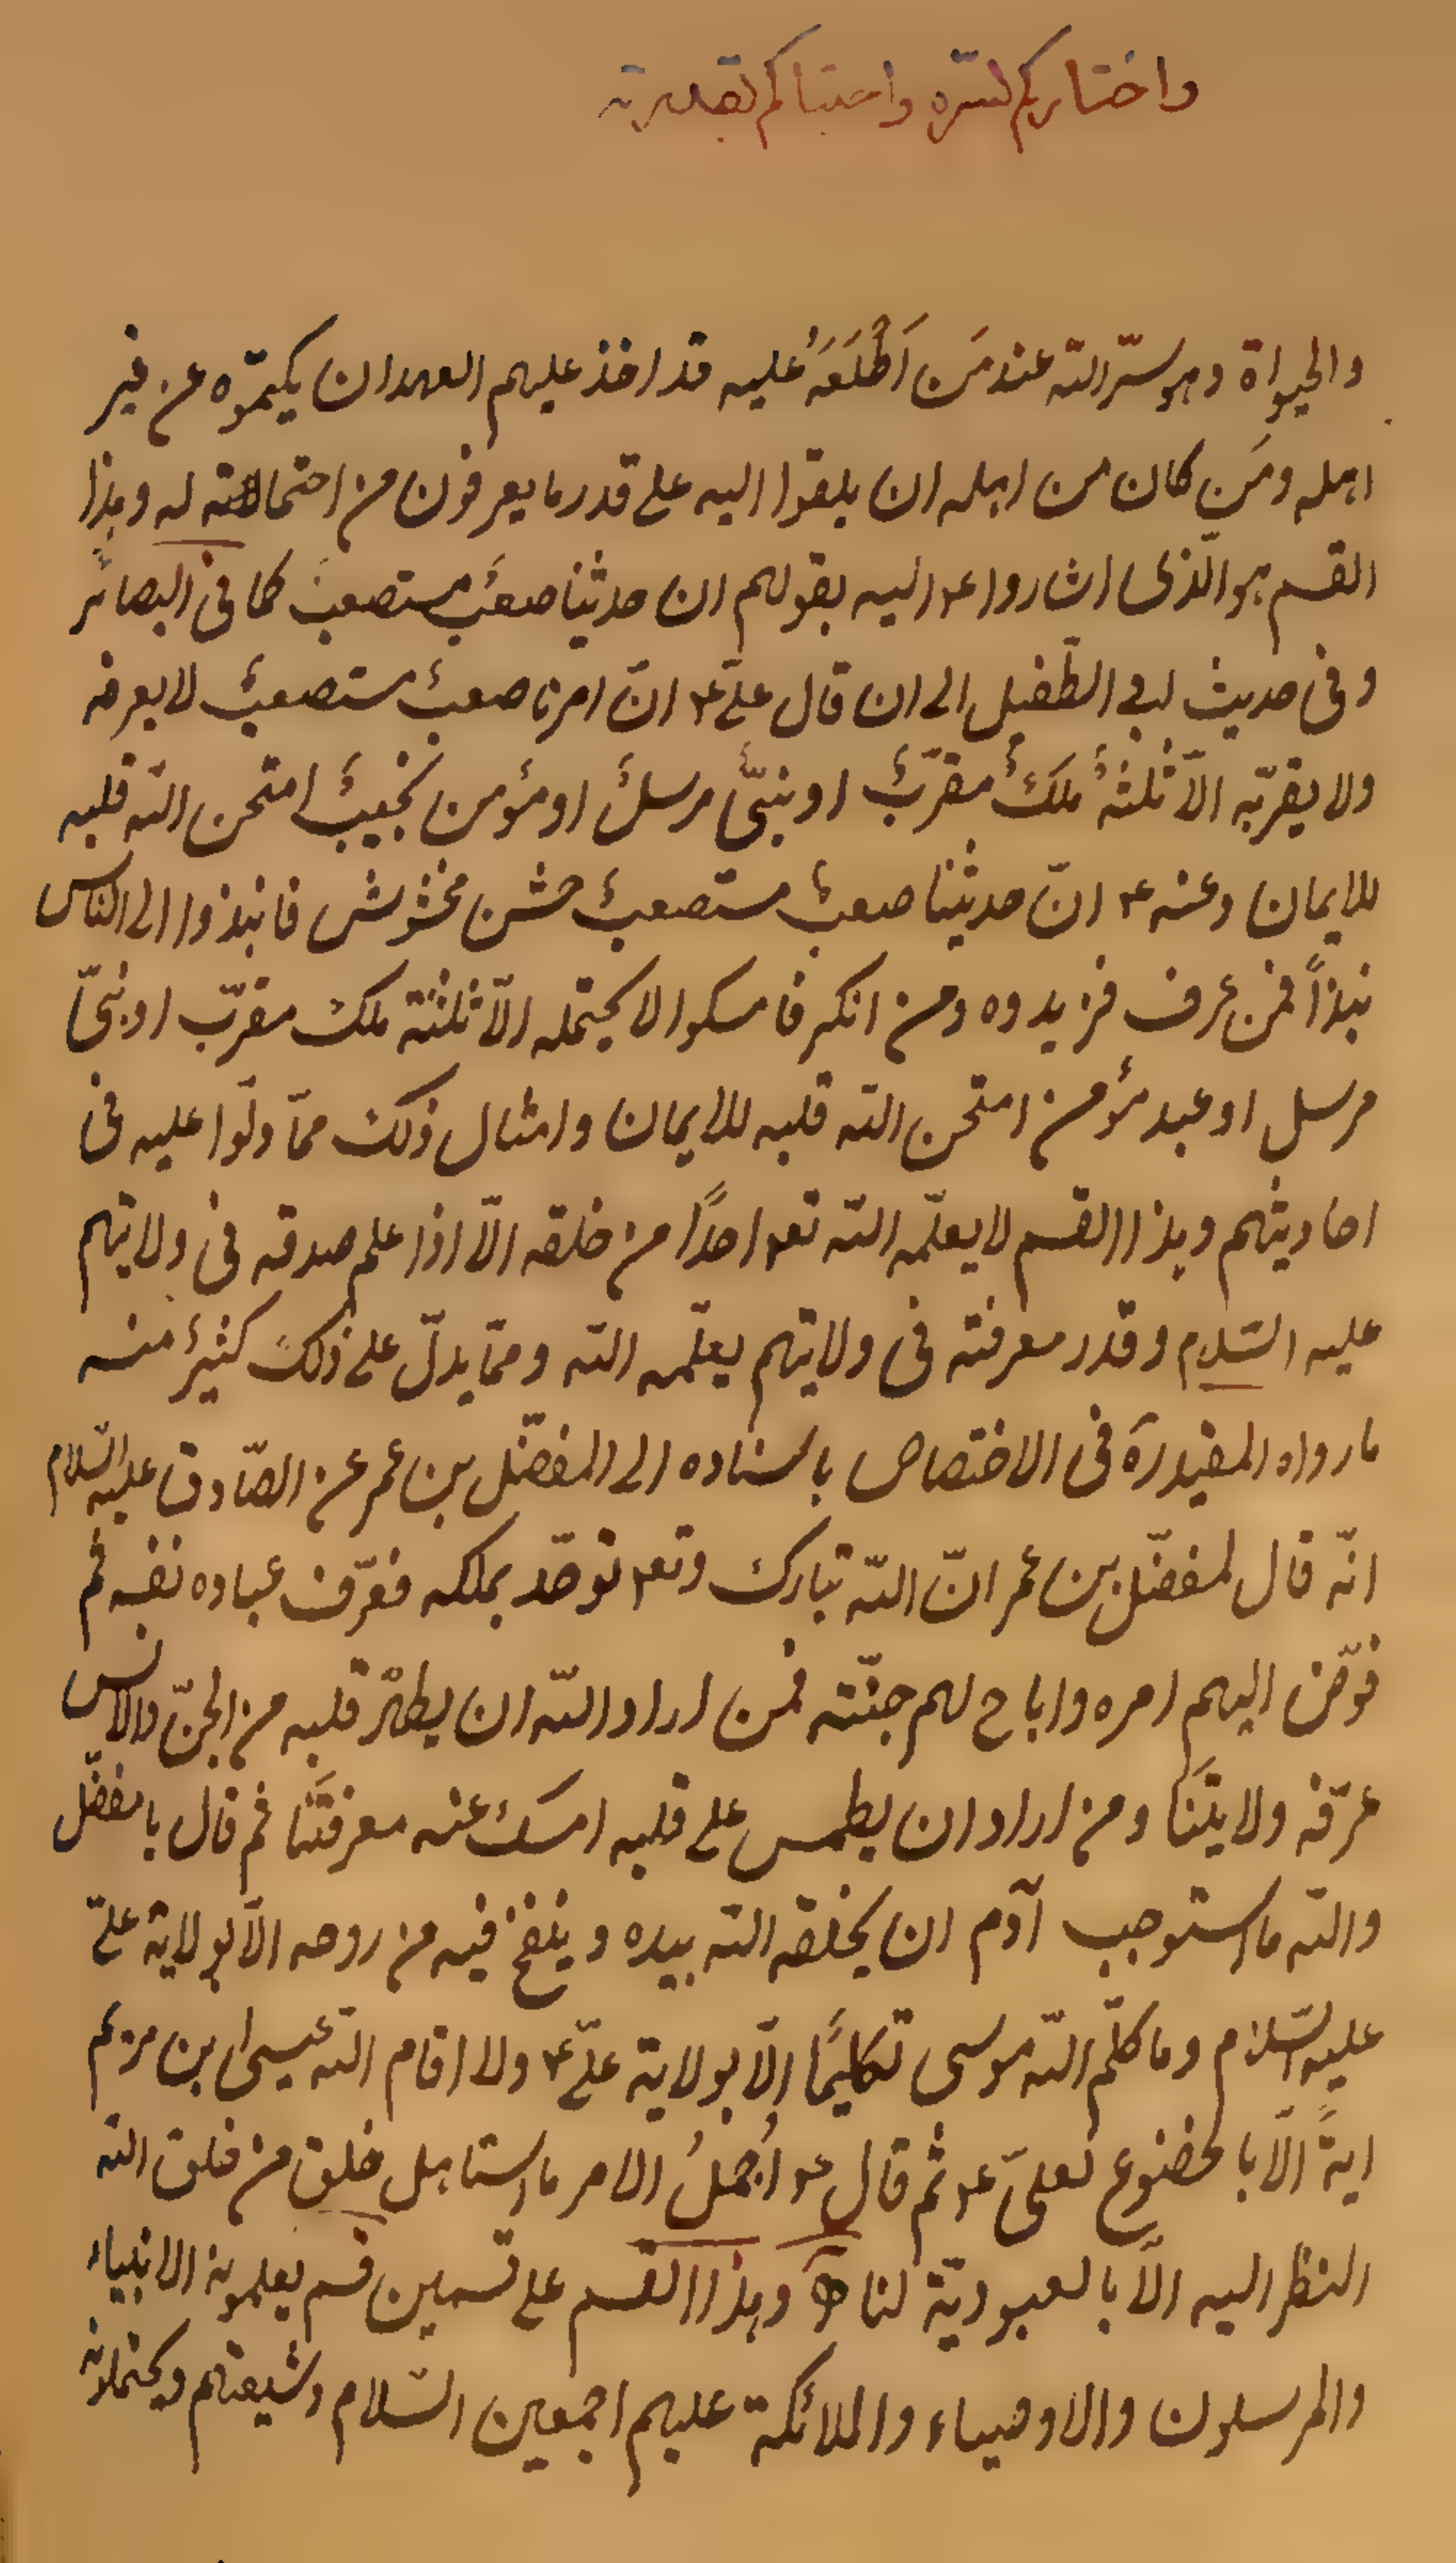 واختاركم لسره واجتباكم بقدرته
والحيواة وهو سرّ الله عند مَن اَطْلَعَهُ عليه قد اخذ عليهم العهد ان يكتموه عن غير
اهله ومَن كان من اهله ان يلقوا اليه على قدر ما يعرفون من احتماله له وهذا
القسم هو الّذى اشاروا ع اليه بقولهم ان حديثنا صعبٌ مستصعبٌ كما فى البصائر
وفى حديث ابى الطّفيل الى ان قال علىّ ع انّ امرنا صعبٌ مستصعبٌ لا يعرفه
ولا يقرّبه الّا ثلثةٌ ملكٌ مقرّبٌ او نبىٌّ مرسلٌ او مؤمن نجيبٌ امتحن الله قلبه
للايمان وعنه ع انّ حديثنا صعبٌ مستصعبٌ خشن مخشوش فانبذوا الى الناس
نبذاً فمن عرف فزيدوه ومن انكر فامسكوا لا يحتمله الّا ثلثة ملك مقرّب او نبىّ
مرسل او عبد مؤمن امتحن الله قلبه للايمان وامثال ذلك ممّا دلّوا عليه فى
احاديثهم وهذا القسم لا يعلّمه الله تعه احدًا من خلقه الّا اذا علم صدقه فى ولايتهم
عليه السّلام وقدر معرفته فى ولايتهم يعلّمه الله وممّا يدلّ على ذلك كثيرٌ منه
ما رواه المفيد رَه فى الاختصاص باسناده الى المفضّل بن عمر عن الصّادق عليه السّلام
انّه قال لمفضّل بن عمر انّ الله تبارك وتعه توحّد بملكه فعرّف عباده نفسه ثم
فوّض اليهم امره واباح لهم جنّته فمن اراد الله ان يطهّر قلبه من الجنّ والانس
عرّفه ولايتَنا ومن اراد ان يطمس على قلبه امسك عنه معرفتَنا ثم قال يا مفضّل
والله ما استوجب آدم ان يخلقه الله بيده وينفخ فيه من روحه الّا بولاية علىّ
عليه السّلام وما كلّم الله موسى تكليمًا الّا بولاية علىّ ع ولا اقام الله عيسى ابن مريم
ايةً الّا بالخضوع لعلىّ ع ثم قال ع اُجملُ الامر ما استاهل خلق من خلق الله
النظر اليه الّا بالعبوديّة لنا وهذا القسم على قسمين قسم يعلمونه الانبياء
والمرسلون والاوصياء والملائكة عليهم اجمعين السّلام وشيعتهم ويحتملونه